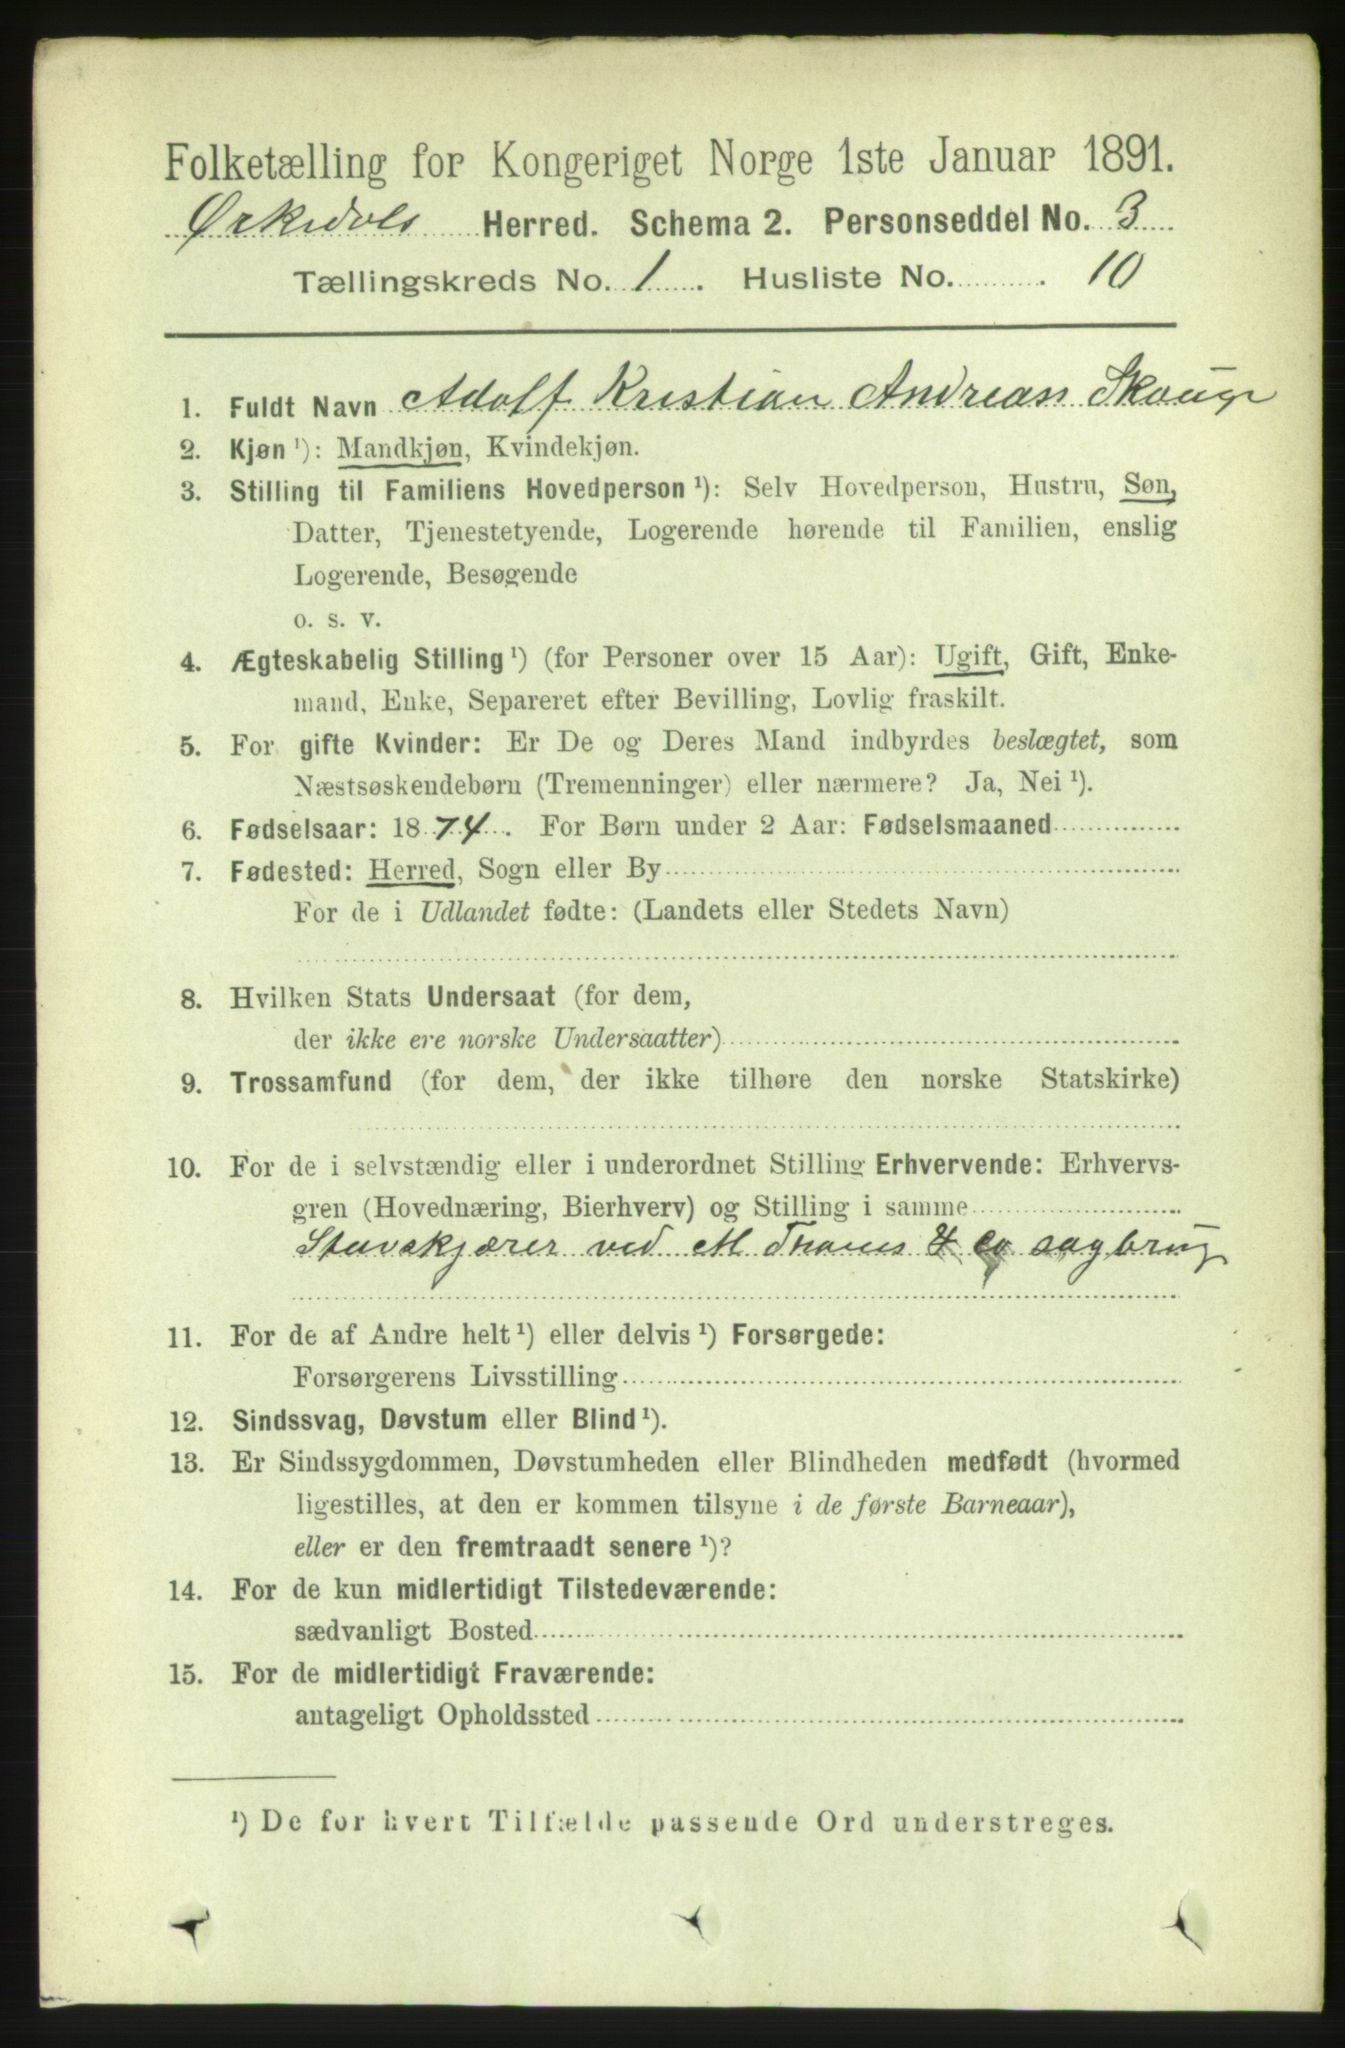 Folketælling for Kongeriget Norge 1ste Januar 1891.
Ørkedals Herred. Schema 2. Personseddel No. 3
Tællingskreds No. 1. Husliste No. . 10
1. Fuldt Navn Adolf Kristian Andreas Skauge
2. Kjøn ¹): Mandkjøn, Kvindekjøn.
3. Stilling til Familiens Hovedperson ¹): Selv Hovedperson, Hustru, Søn,
Datter, Tjenestetyende, Logerende hørende til Familien, enslig
Logerende, Besøgende
o. s. v.
4. Ægteskabelig Stilling ¹) (for Personer over 15 Aar): Ugift, Gift, Enke-
mand, Enke, Separeret efter Bevilling, Lovlig fraskilt.
5. For gifte Kvinder: Er De og Deres Mand indbyrdes beslægtet, som
Næstsøskendebørn (Tremenninger) eller nærmere? Ja, Nei ¹).
6. Fødselsaar: 1874. For Børn under 2 Aar: Fødselsmaaned
7. Fødested: Herred, Sogn eller By
For de i Udlandet fødte: (Landets eller Stedets Navn)
8. Hvilken Stats Undersaat (for dem,
der ikke ere norske Undersaatter)
9. Trossamfund (for dem, der ikke tilhøre den norske Statskirke)
10. For de i selvstændig eller i underordnet Stilling Erhvervende: Erhvervs-
gren (Hovednæring, Bierhverv) og Stilling i samme
Stavskjærer ved M Thams & Co sagbrug
11. For de af Andre helt ¹) eller delvis ¹) Forsørgede:
Forsørgerens Livsstilling
12. Sindssvag, Døvstum eller Blind ¹).
13. Er Sindssygdommen, Døvstumheden eller Blindheden medfødt (hvormed
ligestilles, at den er kommen tilsyne i de første Barneaar),
eller er den fremtraadt senere ¹)?
14. For de kun midlertidigt Tilstedeværende:
sædvanligt Bosted
15. For de midlertidigt Fraværende:
antageligt Opholdssted
¹) De for hvert Tilfælde passende Ord understreges.